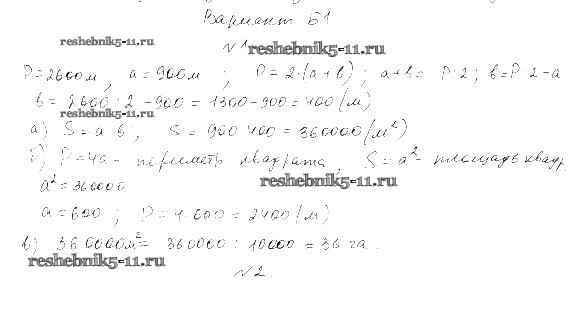 Вариант Б1
reshebnik5-11.ru
№1 reshebnik5-11.ru
P=2600м, a=900м ; P=2·(a+b) ; a+b= P:2 ; b=P:2-a
b = 2600:2-900=1300-900=400(м)
reshebnik5-11.ru
а) S=a·b, S=900·400=360000(м²)
б) P=4a- периметр квадрата, S=a²- площадь квадр
reshebnik5-11.ru
a²=360000
a=600 ; P=4·600=2400(м)
в) 360000м²= 360000:10000=36га.
reshebnik5-11.ru
№2.